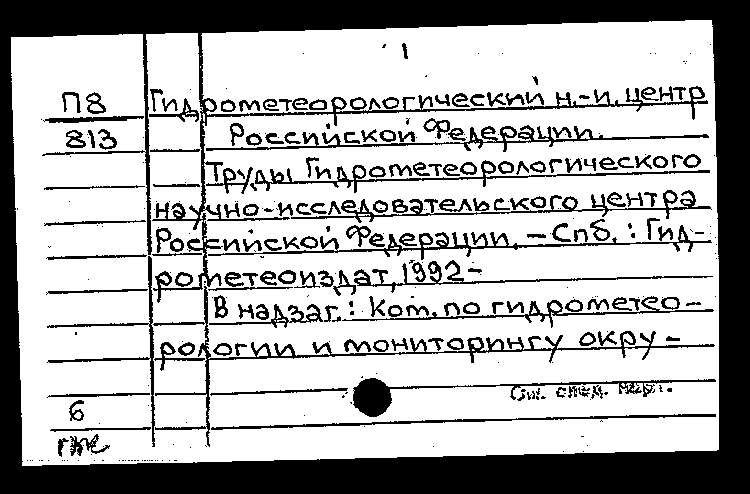 1
П8 Гидрометеорологический н.-и. центр
813 Российской Федерации.
Труды Гидрометеорологического
научно-исследовательского центра
Российской Федерации. – Спб. : Гид-
рометеоиздат, 1992 –
В надзаг. : Ком. по гидрометео-
рологии и мониторингу окру-
См. след. карт.
6